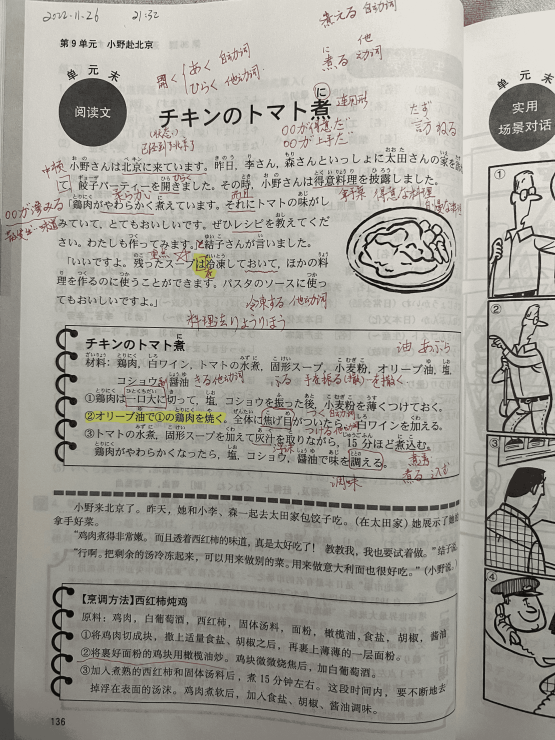 2022.11.26 21:32
第9单元 小野赴北京
单元末
阅读文
煮える 自动词
煮る 他动词
開く あく 自动词
ひらく 他动词
チキンのトマト煮
連用形
〇〇が得意だ
〇〇が上手だ
小野さんは北京に来ています。昨日，李さん，森さんといっしょに太田さんの家を訪
餃子パーティーを開きました。その時，小野さんは得意料理を披露しました。
「鶏肉がやわらかく煮えています。それにトマトの味がし
みていて，とてもおいしいです。ぜひレシピを教えてくだ
さい。わたしも作ってみます」と結子さんが言いました。
「いいですよ。残ったスープは冷凍しておいて，ほかの料
理を作るのに使うことができます。パスタのソースに使っ
てもおいしいですよ。」
冷凍する 他动词
料理法 りょうりほう
油 あぶら
チキンのトマト煮
材料：鶏肉，白ワイン，トマトの水煮，固形スープ，小麦粉，オリーブ油，塩，
コショウ，醤油
①鶏肉は一口大に切って，塩，コショウを振った後，小麦粉を薄くつけておく。
②オリーブ油で①の鶏肉を焼く。全体に焦げ目がついたら，白ワインを加える。
③トマトの水煮，固形スープを加えて灰汁を取りながら，15分ほど煮込む。
鶏肉がやわらかくなったら，塩，コショウ，醤油で味を調える。
调味
小野来北京了。昨天，她和小李、森一起去太田家包饺子吃。（在太田家）她展示了她的
拿手好菜。
"鸡肉煮得非常嫩。而且透着西红柿的味道，真是太好吃了！ 教教我，我也要试着做。"结子说
"行啊。把剩余的汤冷冻起来，可以用来做别的菜。用来做意大利面也很好吃。"（小野说
【烹调方法】西红柿炖鸡
原料：鸡肉，白葡萄酒，西红柿，固体汤料，面粉，橄榄油，食盐，胡椒，酱油
①将鸡肉切成块，撒上适量食盐、胡椒之后，再裹上薄薄的一层面粉。
②将裹好面粉的鸡块用橄榄油炒。鸡块微微烧焦后，加白葡萄酒。
③加入煮熟的西红柿和固体汤料后，煮15分钟左右。这段时间内，要不断地去
掉浮在表面的汤沫。鸡肉煮软后，加入食盐、胡椒、酱油调味。
136
单元末
实用
场景对话
①
②
③
④